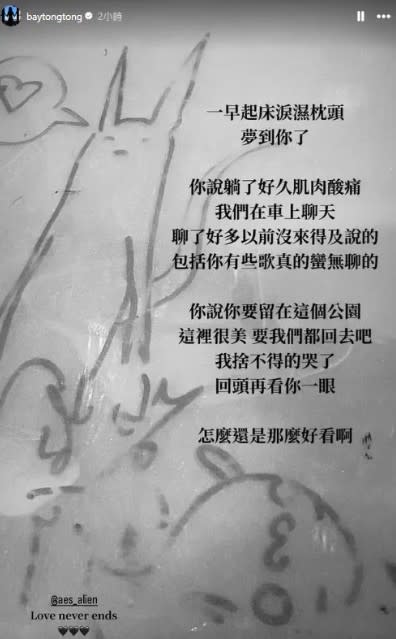 baytongtong 2小時
一早起床淚濕枕頭
夢到你了
你說躺了好久肌肉酸痛
我們在車上聊天
聊了好多以前沒來得及說的
包括你有些歌真的蠻無聊的
你說你要留在這個公園
這裡很美 要我們都回去吧
我捨不得的哭了
回頭再看你一眼
怎麼還是那麼好看啊
@aes_alien
Love never ends